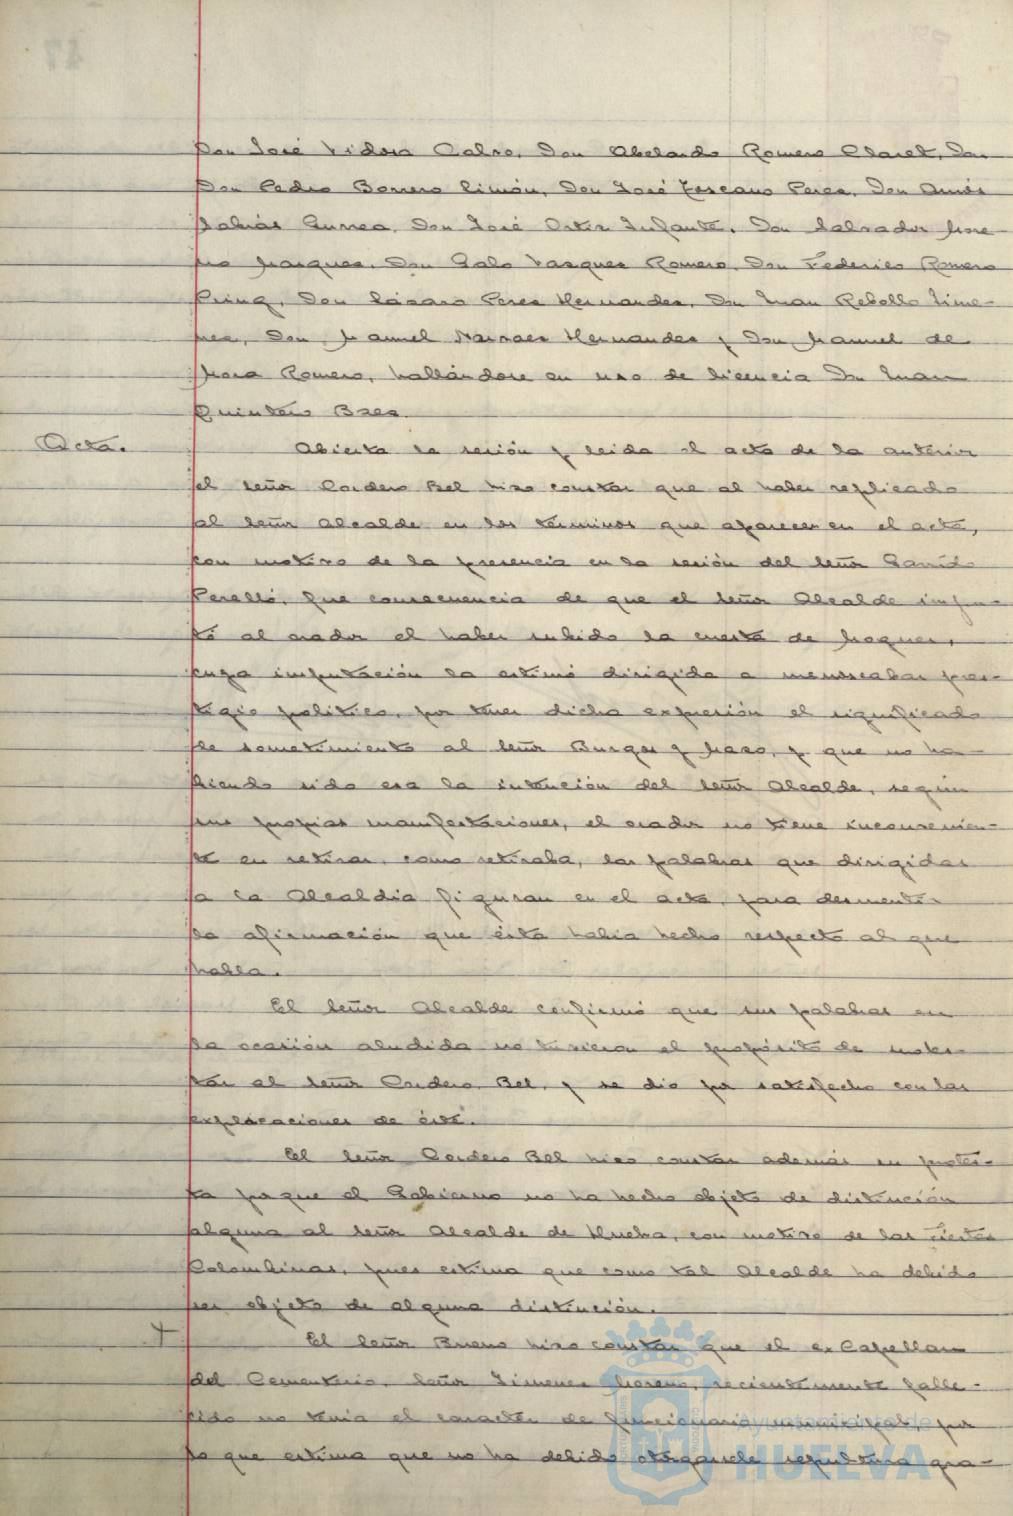 Don José Vidosa Calvo, Don Abelardo Romero Claret, Don
Don Pedro Borrero Limón, Don José Toscano Perea, Don Amós
Sabrás Gurrea, Don José Ortiz Infante, Don Salvador More
no Marquez, Don Galo Vazquez Romero, Don Federico Romero
Don Lázaro Perez Hernandez, Don Juan Rebollo Jime-
nez, Don Manuel Narvaez Hernandez y Don Manuel de
Mora Romero, hallándose en uso de licencia Don Juan
Quintero Baez.
Acta.
Abierta la sesión y leida el acta de la anterior
el señor Cordero Bel hizo constar que al haber replicado
al señor Alcalde en los términos que aparecen en el acta,
con motivo de la presencia en la sesión del señor Garrido
Perelló, fue consecuencia de que el señor Alcalde impu-
tó al orador el haber subido la cuesta de Moguer,
cuya imputación la estimó dirigida a menoscabar pres-
tigio politico, por tener dicha expresión el significado
de sometimiento al señor Burgos y Mazo, y que no ha-
biendo sido esa la intención del señor Alcalde, según
sus propias manifestaciones, el orador no tiene inconvenien-
te en retirar, como retiraba, las palabras que dirigidas
a la Alcaldia figuran en el acta, para desmentir
la afirmación que ésta habia hecho respecto al que
habla.
El señor Alcalde confirmó que sus palabras en
la ocasión aludida no tuvieron el propósito de moles-
tar al señor Cordero Bel, y se dio por satisfecho con las
explicaciones de éste.
El señor Cordero Bel hizo constar además su protes-
ta porque el Gobierno no ha hecho objeto de distinción
alguna al señor Alcalde de Huelva, con motivo de las Fiestas
Colombinas, pues estima que como tal Alcalde ha debido
ser objeto de alguna distinción.
El señor Bueno hizo constar que el ex Capellan
del Cementerio, señor Jimenez Moreno, recientemente falle-
cido no tenia el caracter de funcionario municipal, por
lo que estima que no ha debido otorgarsele sepultura gra-
Ayuntamiento de
HUELVA